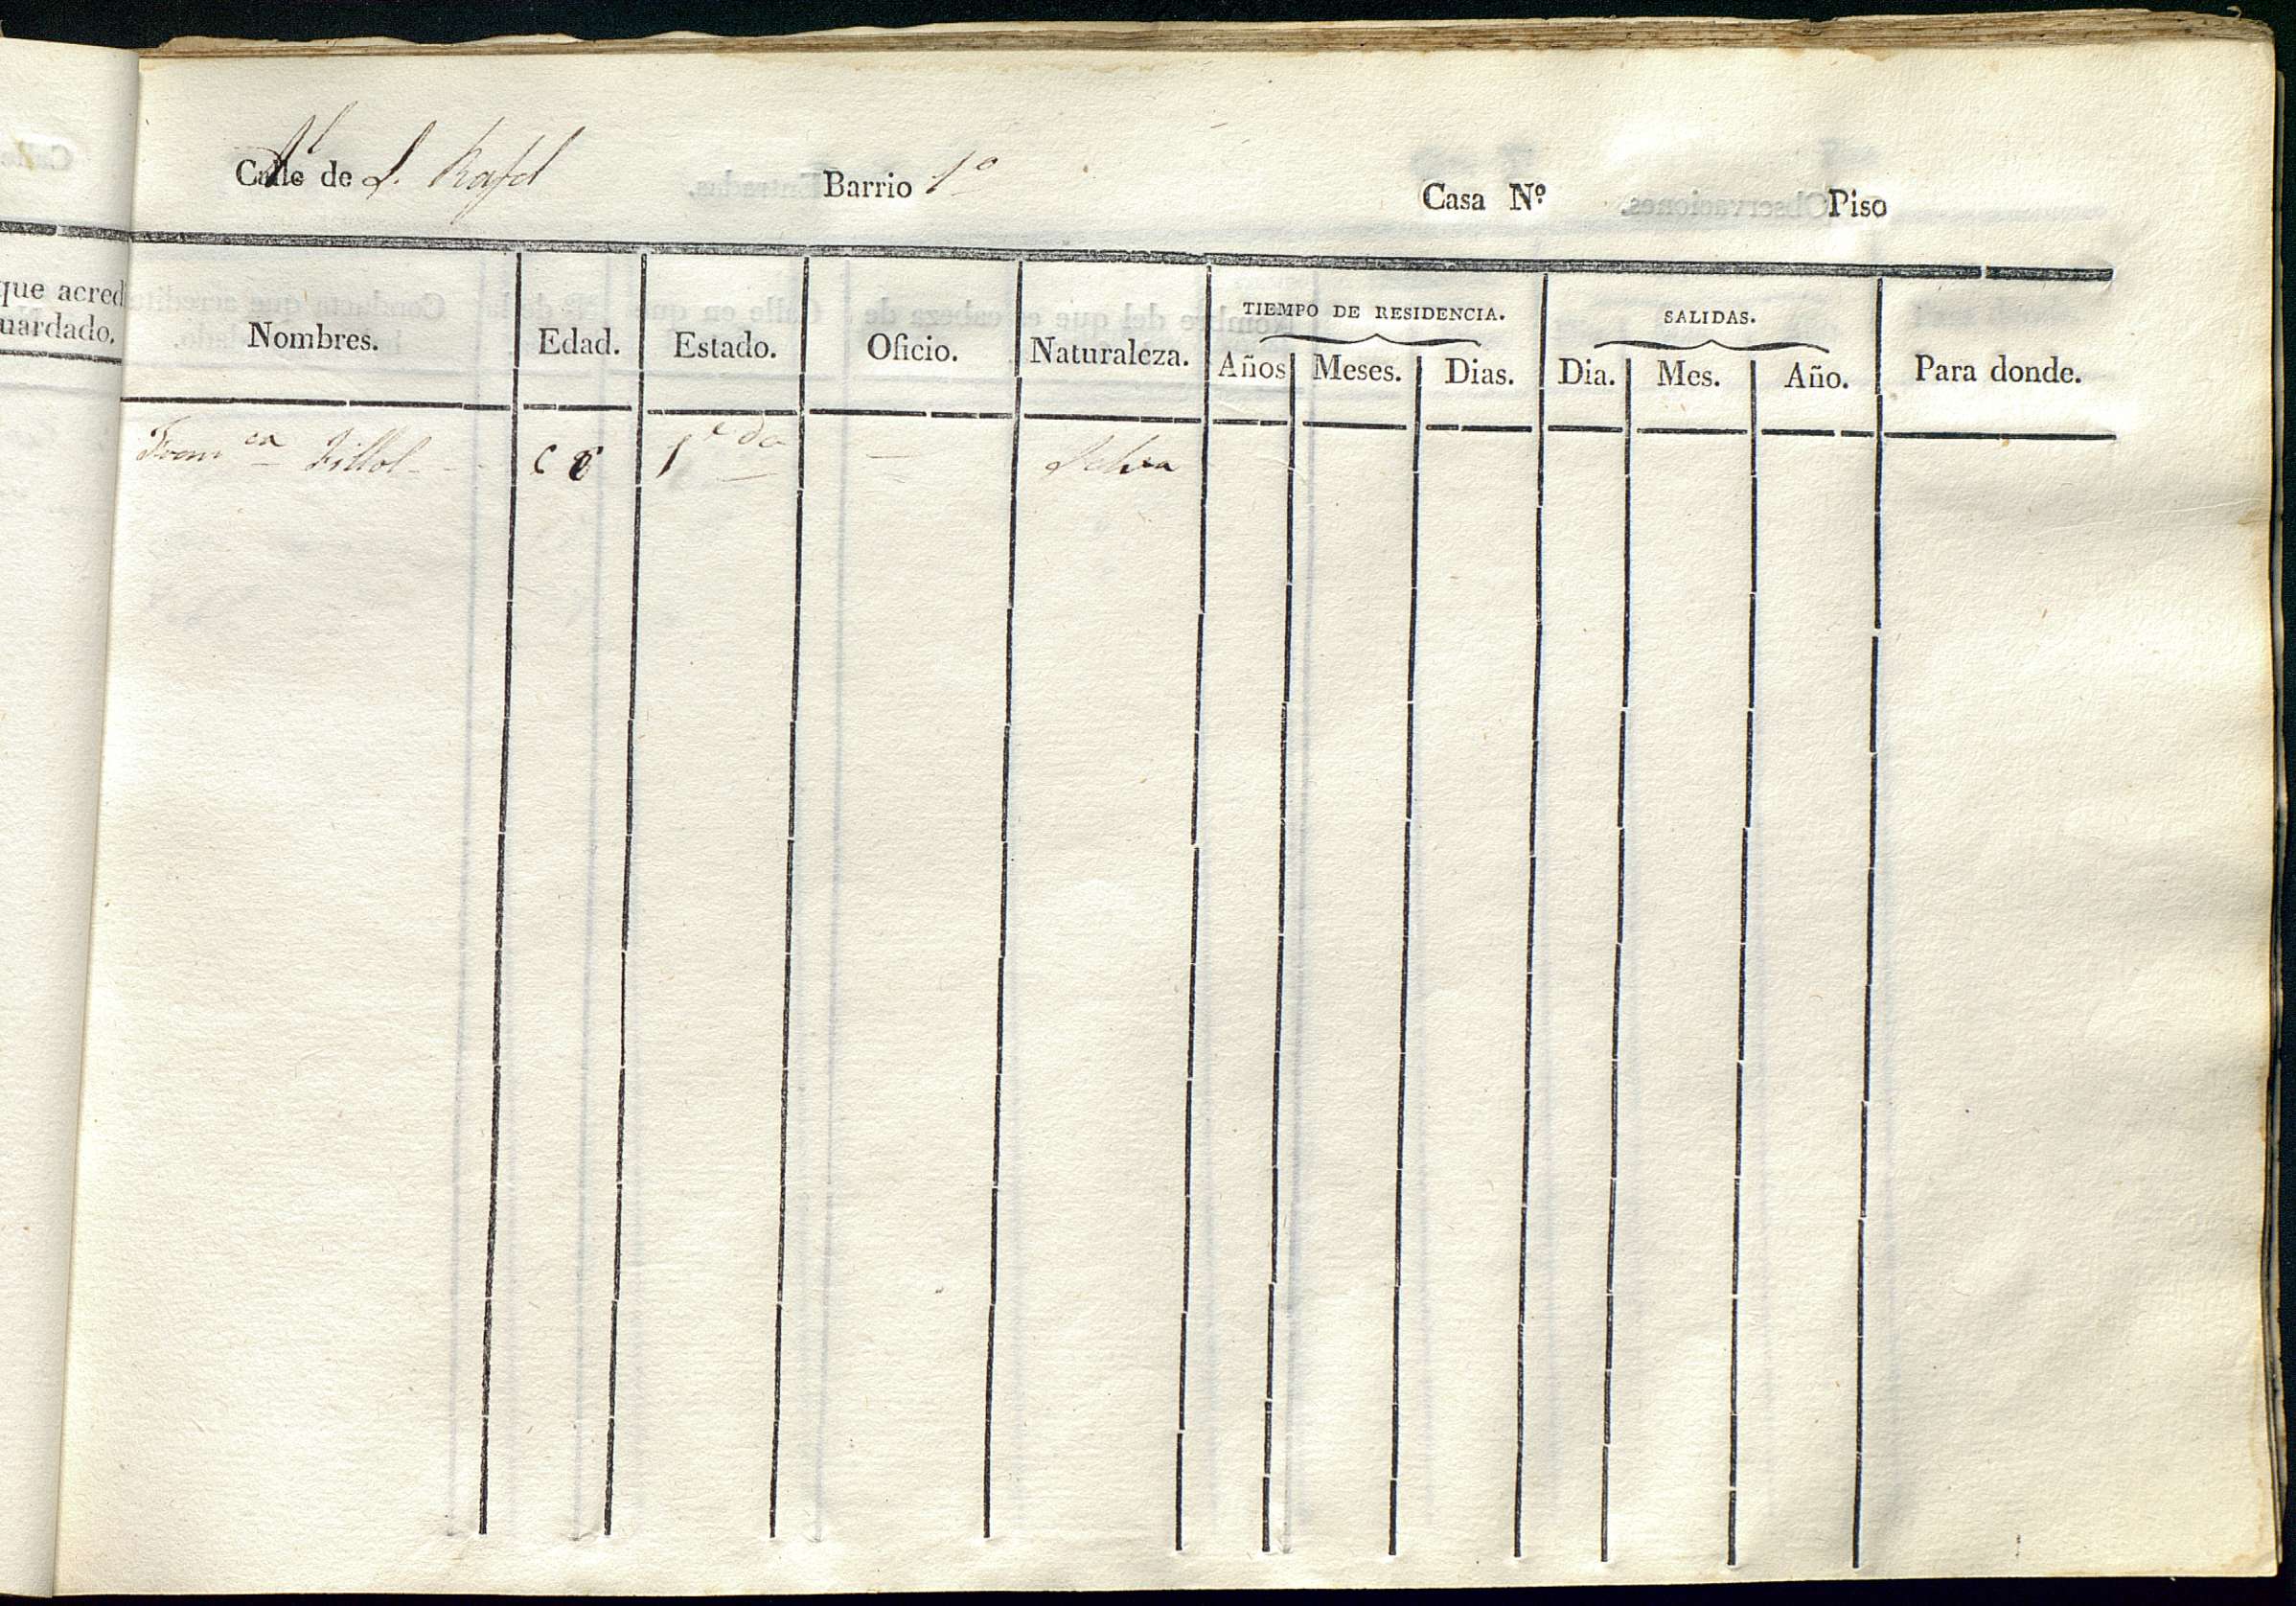 que acred
uardado.
Calle de S. Rafel Barrio 1º Casa Nº Piso
Nombres. Edad. Estado. Oficio. Naturaleza. TIEMPO DE RESIDENCIA. SALIDAS. Para donde.
Años Meses. Dias. Dia. Mes. Año.
Fran ca Fillol - - Selva